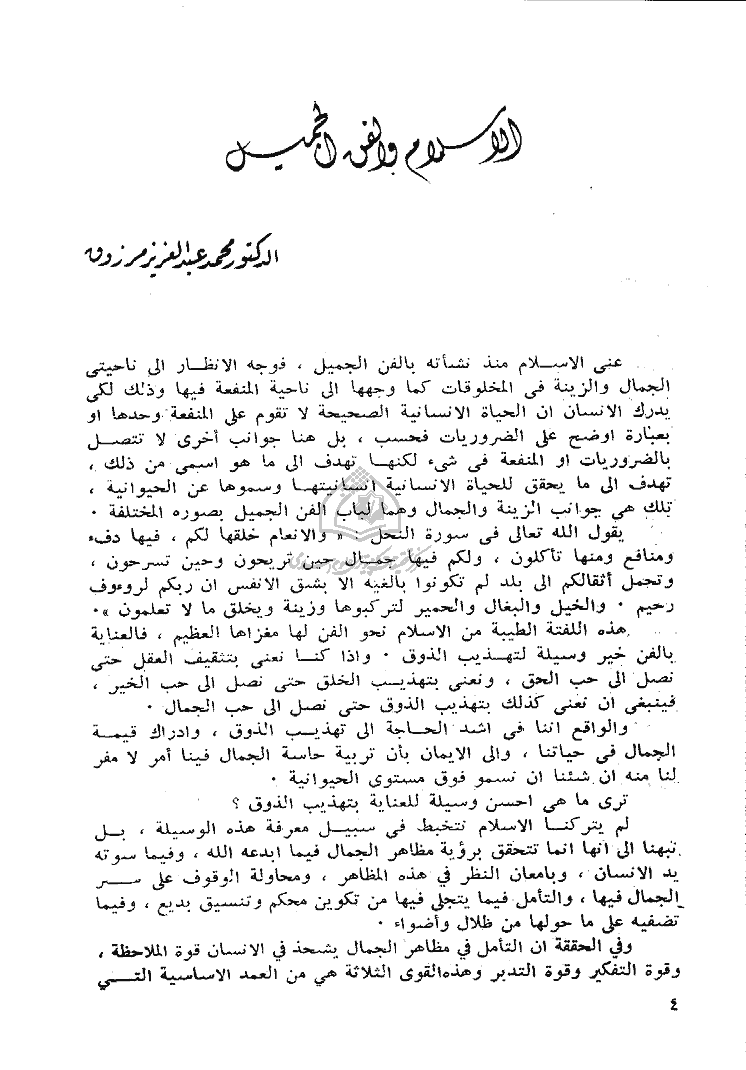 الاسلام والفن الجميل
الدكتور محمد عبد العزيز مرزوق
عنى الاسلام منذ نشأته بالفن الجميل ، فوجه الانظار الى ناحيتى
الجمال والزينة فى المخلوقات كما وجهها الى ناحية المنفعة فيها وذلك لكى
يدرك الانسان ان الحياة الانسانية الصحيحة لا تقوم على المنفعة وحدها او
بعبارة اوضح على الضروريات فحسب ، بل هنا جوانب أخرى لا تتصل
بالضروريات او المنفعة فى شىء لكنها تهدف الى ما هو اسمى من ذلك ،
تهدف الى ما يحقق للحياة الانسانية انسانيتها وسموها عن الحيوانية ،
تلك هي جوانب الزينة والجمال وهما لباب الفن الجميل بصوره المختلفة ٠
يقول الله تعالى فى سورة النحل : « والانعام خلقها لكم ، فيها دفء
ومنافع ومنها تأكلون ، ولكم فيها جمال حين تريحون وحين تسرحون ،
وتحمل أثقالكم الى بلد لم تكونوا بالغيه الا بشق الانفس ان ربكم لروءوف
رحيم ٠ والخيل والبغال والحمير لتركبوها وزينة ويخلق ما لا تعلمون »٠
هذه اللفتة الطيبة من الاسلام نحو الفن لها مغزاها العظيم ، فالعناية
بالفن خير وسيلة لتهذيب الذوق ٠ واذا كنا نعنى بتثقيف العقل حتى
نصل الى حب الحق ، ونعنى بتهذيب الخلق حتى نصل الى حب الخير ،
فينبغى ان نعنى كذلك بتهذيب الذوق حتى نصل الى حب الجمال ٠
والواقع اننا فى اشد الحاجة الى تهذيب الذوق ، وادراك قيمة
الجمال فى حياتنا ، والى الايمان بأن تربية حاسة الجمال فينا أمر لا مفر
لنا منه ان شئنا ان نسمو فوق مستوى الحيوانية ٠
ترى ما هى احسن وسيلة للعناية بتهذيب الذوق ؟
لم يتركنا الاسلام نتخبط فى سبيل معرفة هذه الوسيلة ، بل
نبهنا الى انها انما تتحقق برؤية مظاهر الجمال فيما ابدعه الله ، وفيما سوته
يد الانسان ، وبامعان النظر في هذه المظاهر ، ومحاولة الوقوف على سر
الجمال فيها ، والتأمل فيما يتجلى فيها من تكوين محكم وتنسيق بديع ، وفيما
تضفيه على ما حولها من ظلال وأضواء ٠
وفي الحققة ان التأمل في مظاهر الجمال يشحذ في الانسان قوة الملاحظة ،
وقوة التفكير وقوة التدبر وهذه القوى الثلاثة هي من العمد الاساسية التي
٤